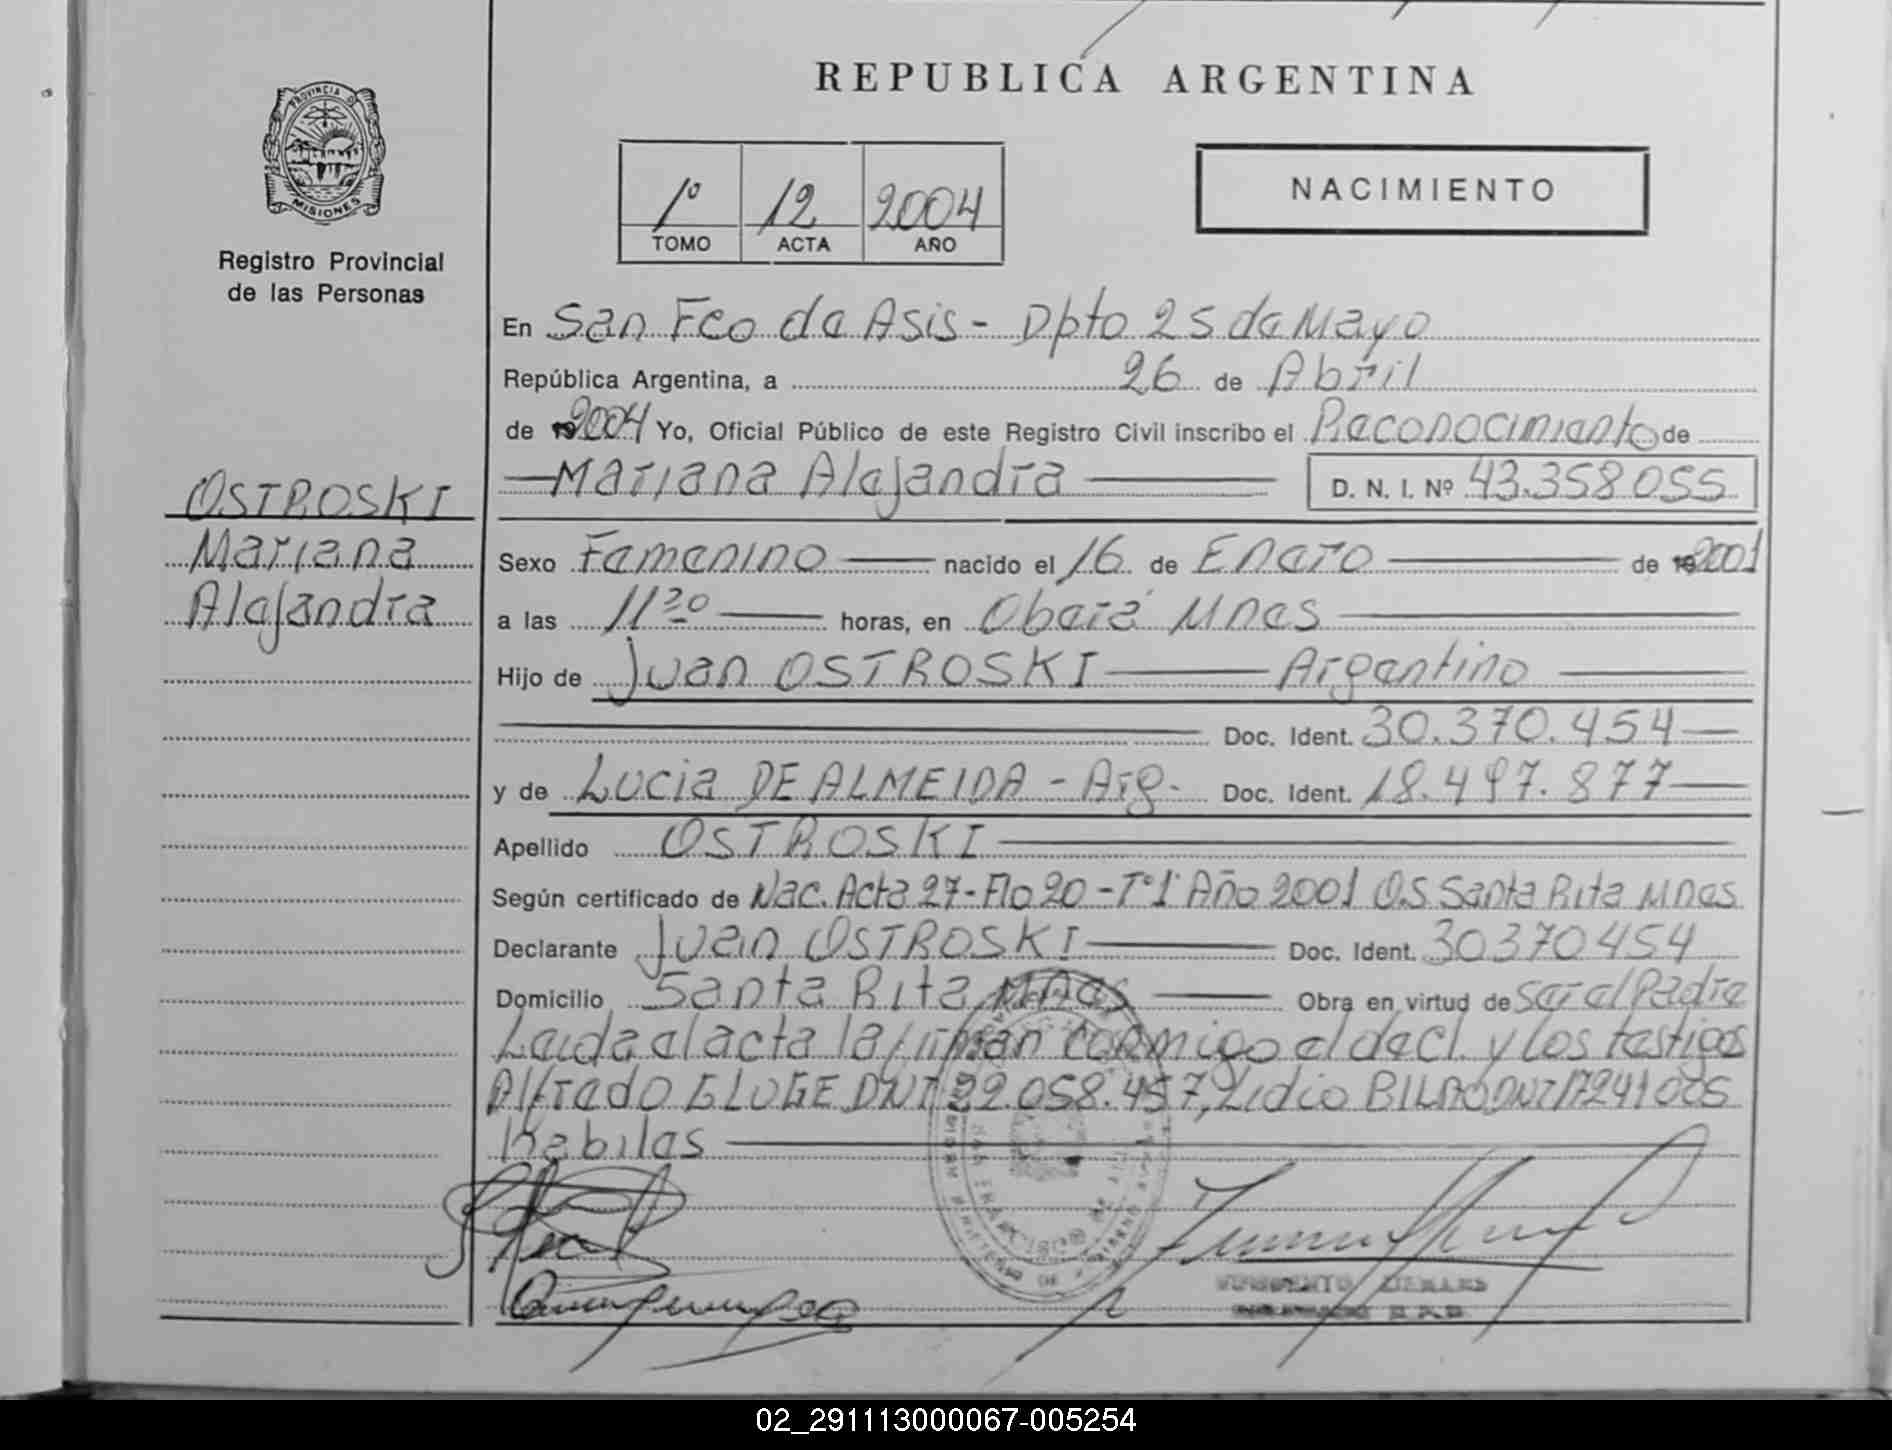 REPUBLICA ARGENTINA
PROVINCIA D
MISIONES
Registro Provincial
de las Personas
1º 12 2004
TOMO ACTA AÑO
NACIMIENTO
En San Fco de Asis - Dpto 25 de Mayo
República Argentina, a 26 de Abril
de 2004 Yo, Oficial Público de este Registro Civil inscribo el Reconocimiento de
Mariana Alejandra D. N. I. Nº 43.358055
OSTROSKI
Mariana
Alejandra
Sexo Femenino nacido el 16 de Enero de 2001
a las 11³⁰ horas, en Oberá Mnes
Hijo de Juan OSTROSKI Argentino
Doc. Ident. 30.370.454
y de Lucia DE ALMEIDA - Arg- Doc. Ident. 18.497.877
Apellido OSTROSKI
Según certificado de Nac. Acta 27- Flo 20 - Tº1º Año 2001 O.S Santa Rita Mnes
Declarante Juan OSTROSKI Doc. Ident. 30370454
Domicilio Santa Rita Mnes Obra en virtud de ser el Padre
Leida el acta la firman conmigo el decl. y los testigos
Alfredo GLUGE DNI 22.058.457, Lidio DNI 17241005
02_291113000067-005254